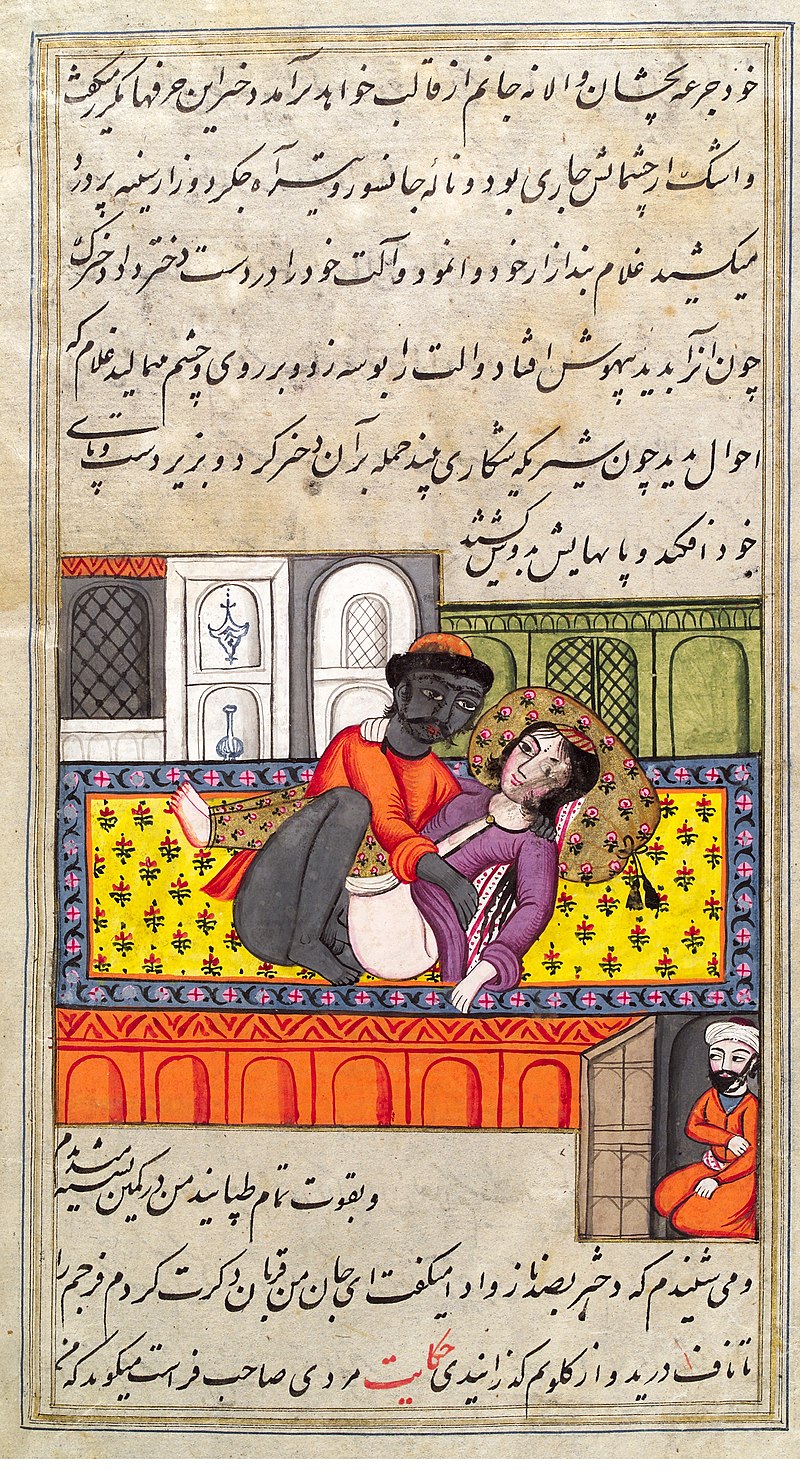 خود جرعه بچشان والا نه جانم از قالب خواهد برآمد دختر این حرفها میگفت
و اشک از چشمانش جاری بود و ناله جانسوز و آه جگر دوز از سینه پر درد
میکشید غلام بند ازار خود وا نمود و آلت خود را در دست دختر داد دخترک
چون آنرا بدید بیهوش افتاد و آلت را بوسه زد و بر روی و چشم میمالید غلام که
احوال بدید چون شیریکه شکاری بیند حمله بر آن دختر کرد و بزیر دست و پای
خود افکند و پا بهایش بدوش
و بقوت تمام طپانید من در کمین نشسته
و می شنیدم که دختر بصد ناز و ادا میگفت ای جان من قربان کرت کردم فرجم را
تا ناف درید و از کلویم کذرانیدی حکایت مردی صاحب فراست میگوید که